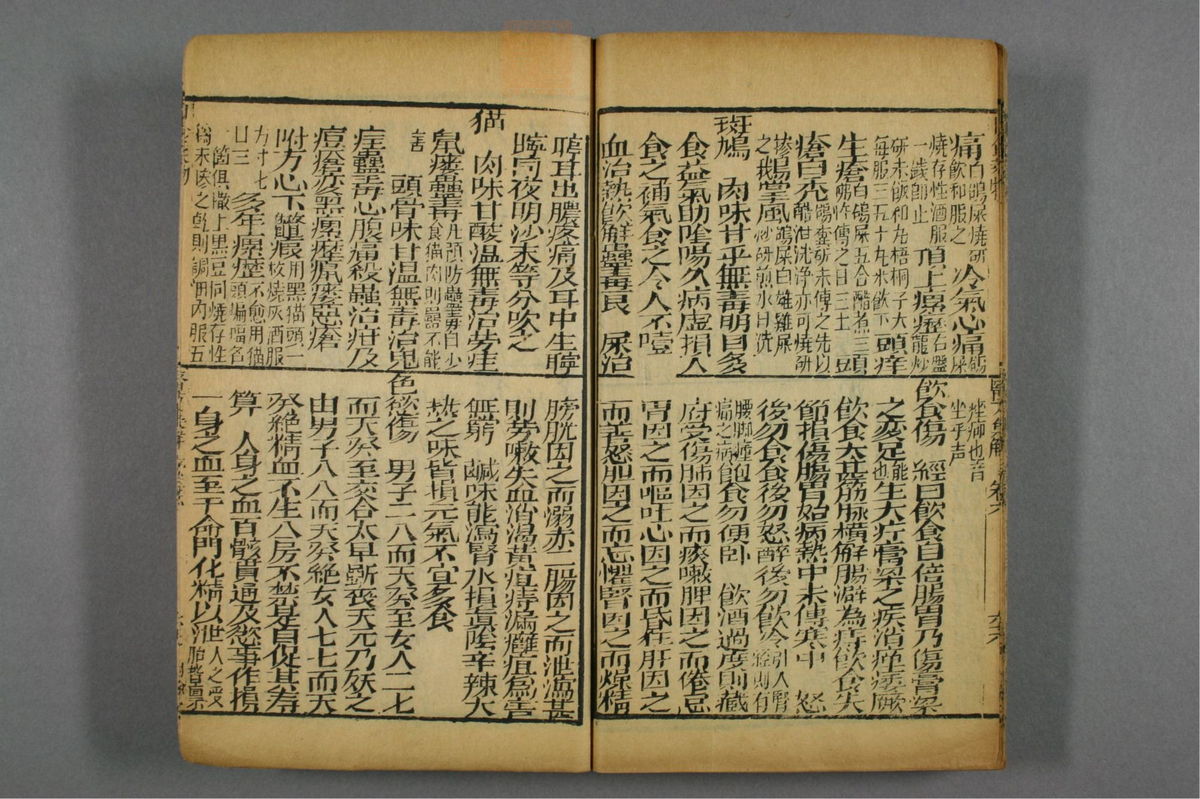 痛白鴿屎燒研飲和服之 冷氣心痛鴿屎
燒存性酒服一錢即止 頂上瘰癧右盤龍炒
研末飯和丸梧桐子大每服三五十丸米飲下 頭痒
生瘡白鴿屎五合醋煮三沸杵傅之日三上 頭
瘡白禿鴿糞研末傅之先以酷泔洗淨亦可燒研
摻之 鵝掌風鴿屎白雄雞屎炒研煎水日洗
斑鳩 肉味甘平無毒明目多
食益氣助陰陽久病虛損人
食之補氣食之令人不噎
血治熱飲解蠱毒良 屎治
聤耳出膿疼痛及耳中生聹
聹同夜明沙末等分吹之
猫 肉味甘酸溫無毒治勞疰
鼠瘻蠱毒凡預防蠱毒自少食猫肉則蠱不能
害 頭骨味甘溫無毒治鬼
疰蠱毒心腹痛殺蟲治疳及
痘瘡變黑瘰癧鼠瘻惡瘡
附方心下鱉瘕用黑猫頭一枚燒灰酒服
方寸匕日三 多年瘰癧不愈用猫頭蝙蝠各
一箇俱撒上黑豆同燒存性為末摻之乾則調油內服五
痤痱也音坐乎声
飲食傷 經曰飲食自倍腸胃乃傷膏粱
之变足能也生大疔膏粱之疾消痒痿厥
飲食大甚筋脉橫解腸澼為痔飲食失
節損傷腸胃始病熱中末傳寒中 怒
後勿食食後勿怒醉後勿飲冷引人腎經則有
腰脚腫痛之病飽食勿便卧 飲酒過度則藏
府受傷肺因之而痰嗽脾因之而倦怠
胃因之而嘔吐心因之而昏狂肝因之
而善怒胆因之而忘懼腎因之而燥精
膀胱因之而溺赤二腸因之而泄瀉甚
則勞嗽失血消渴黃疸痔漏癰疽為害
無窮 鹹味能瀉腎水損真陰辛辣大
熱之味皆損元氣不宜多食
色慾傷 男子二八而天癸至女人二七
而天癸至交合太早斲喪天元乃夭之
由男子八八而天癸絕女人七七而天
癸絕精血不生入房不禁是自促其壽
算 人身之血百骸貫通及慾事作撮
一身之血至于命門化精以泄人之受胎皆禀